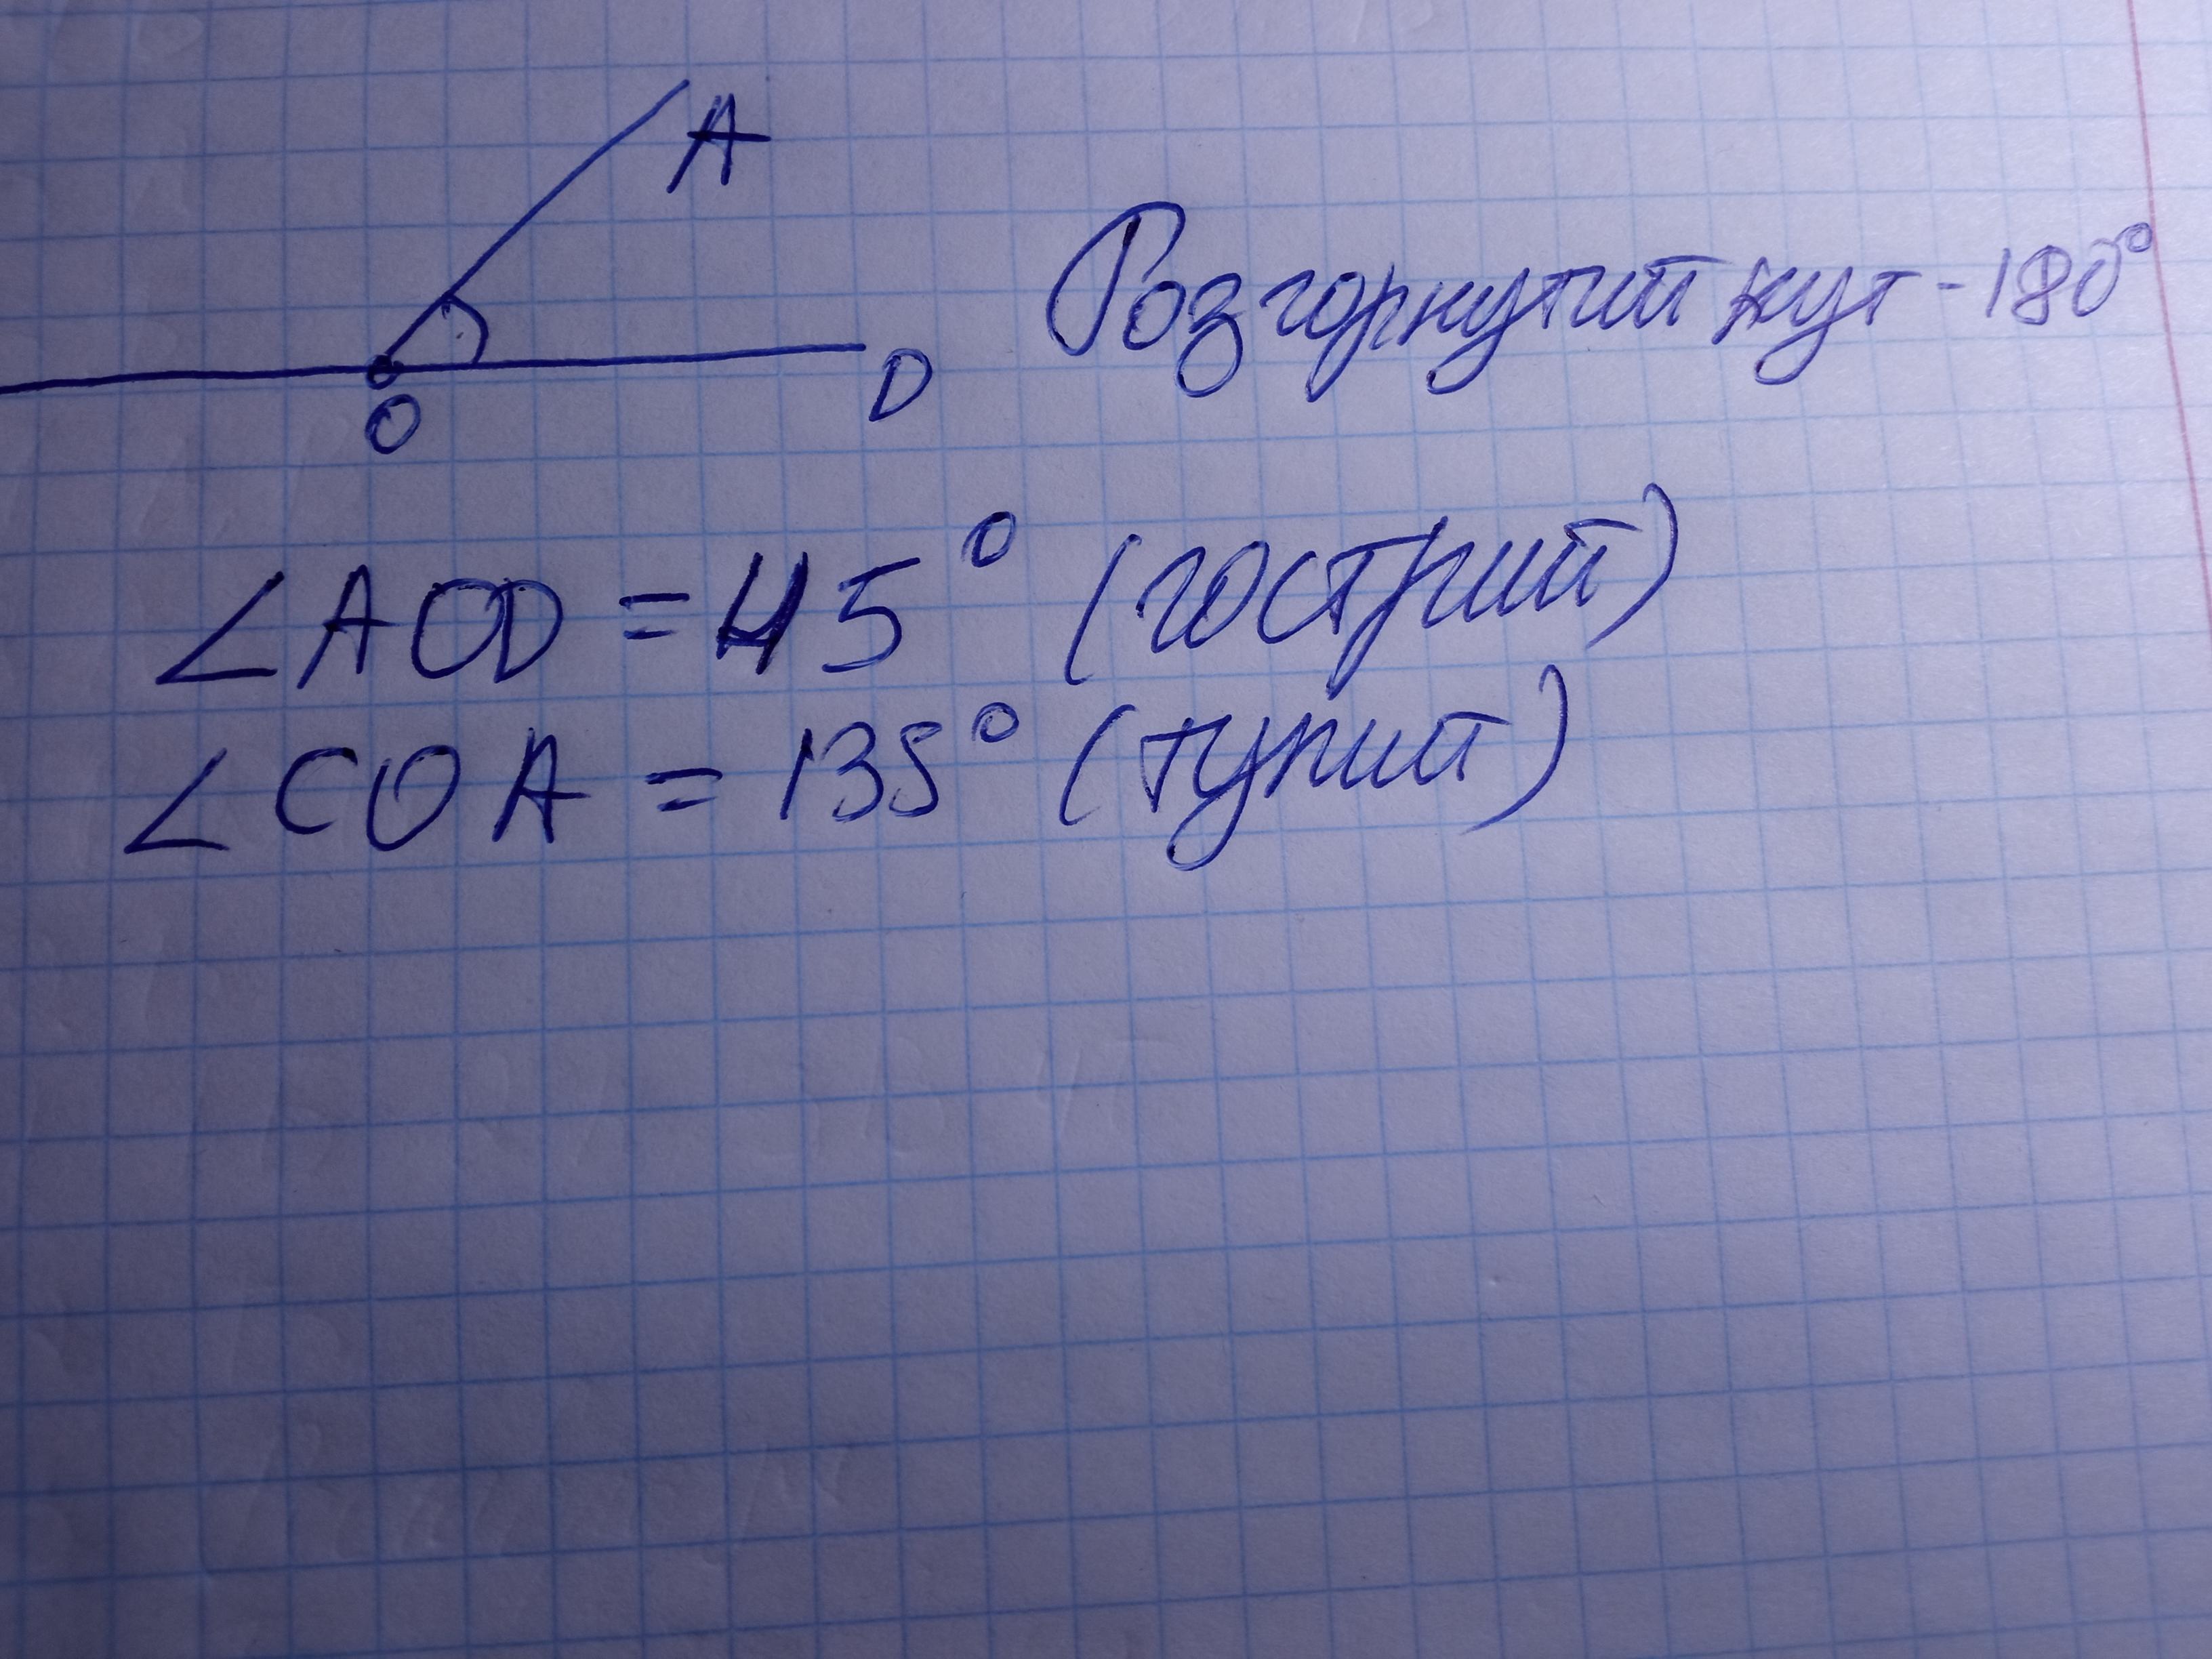 A
Розгорнутий кут - 180°
O
D
∠AOD = 45° (гострий)
∠COA = 135° (тупий)